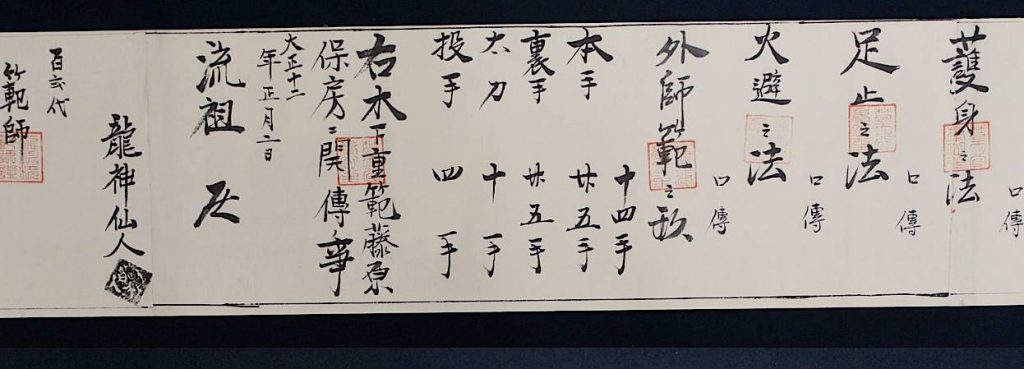 護身之法
口傳
足止之法
口傳
火避之法
口傳
外師範之
十四手
本手 廿五手
裏手 廿五手
太刀 十一手
投手 四手
右木下重範藤原
保房ニ開傳
大正十二
年正月二日
流祖
龍神仙人
百六代
範師